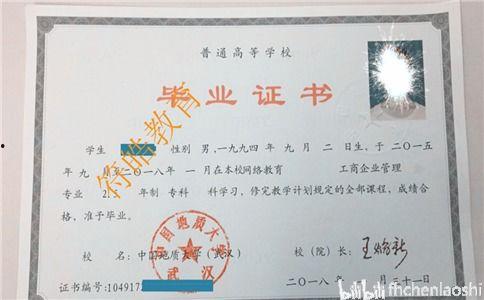 普通高等学校
毕业证书
学生 性别 男,一九九四年 九 月 二 日生,于 二〇一五
年 九 月至二〇一八年 一 月在本校网络教育 工商企业管理
专业 2. 年制 专科 科学习,修完教学计划规定的全部课程,成绩合
格,准予毕业。
校 名:中国地质大学(武汉) 校(院)长:
证书编号:104917 二〇一八 年 月 三十一日
符皓教育
中国地质大学
武汉
bilibili fhchenlaoshi